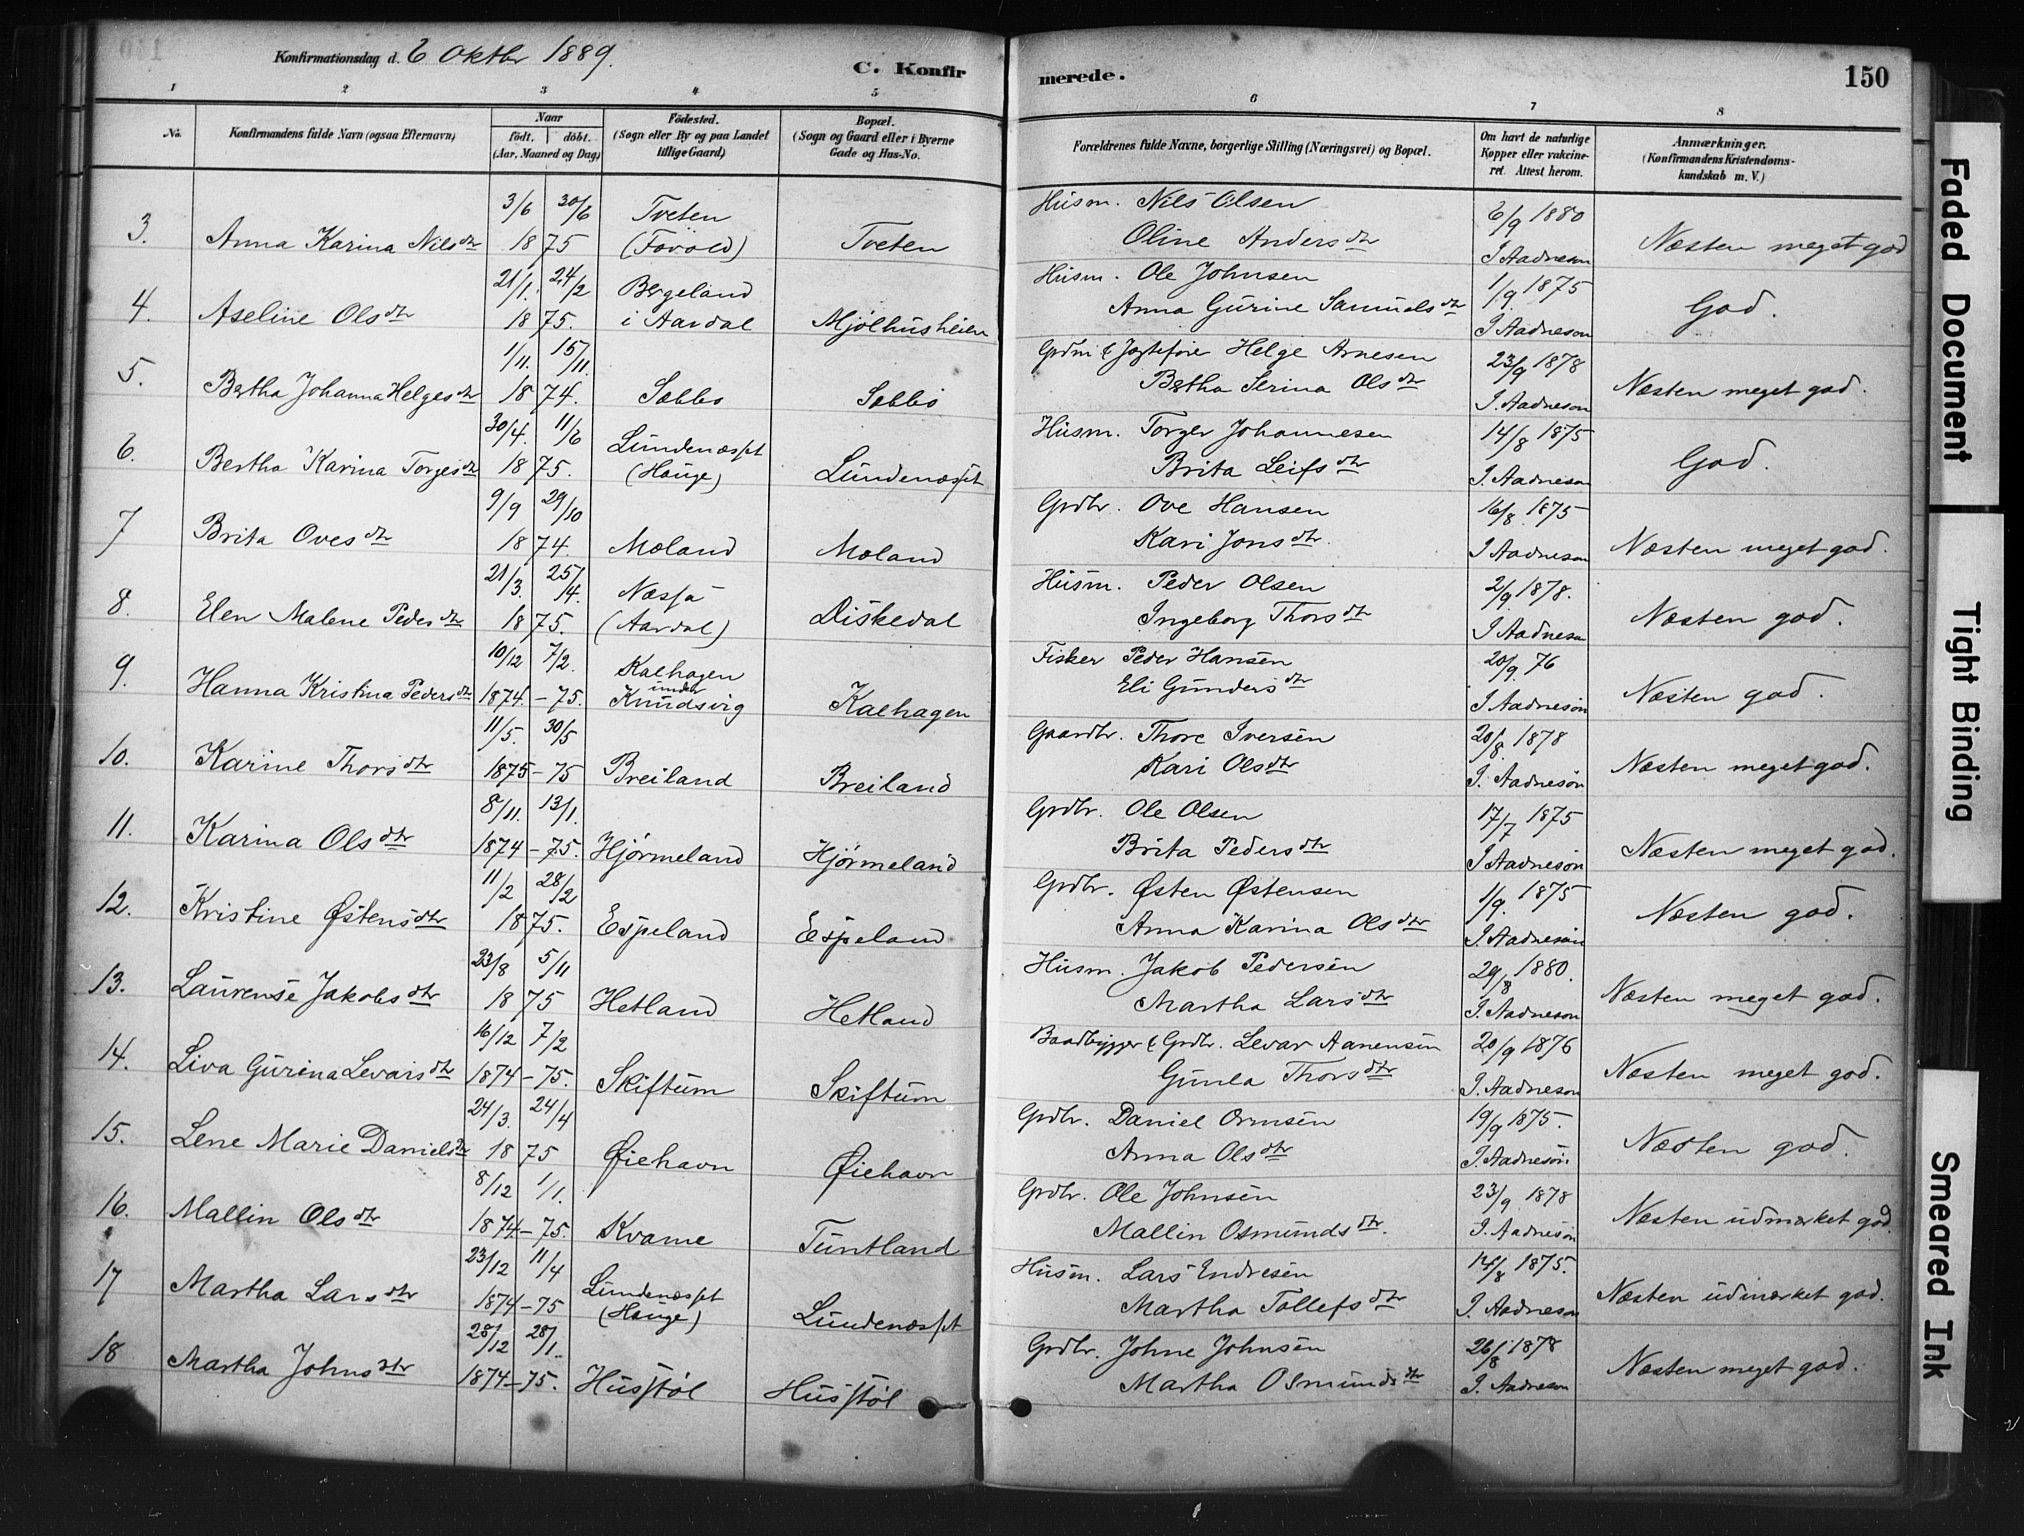 Konfirmationsdag d. 6 Oktbr 1889.
C. Konfirmerede.
150
1 2 3 4 5 6 7 8
No.
Konfirmandens fulde Navn (ogsaa Efternavn)
Naar
födt. döbt.
(Aar, Maaned og Dag)
Födested.
(Sogn eller By og paa Landet
tillige Gaard)
Bopæl.
(Sogn og Gaard eller i Byerne
Gade og Hus-No.
Forældrenes fulde Navne, borgerlige Stilling (Næringsvei) og Bopæl.
Om havt de naturlige
Kopper eller vakcine-
ret. Attest herom.
Anmærkninger.
(Konfirmandens Kristendoms-
kundskab m. V.)
3/6 30/6 Tveten Husm. Nils Olsen 6/9 1880
3. Anna Karina Nilsdtr 1875 Tveten Oline Andersdtr I Aadneson Næsten meget god
21/1. 24/2 Bergeland Husm. Ole Johnsen 1/9 1875
4. Aseline Olsdtr 1875. i Aardal Mjølhusheien Anna Gurine Samuelsdtr I Aadneson God.
1/11. 15/11. Grdm & Jægtefører Helge Arnesen 23/9 1878
5. Bertha Johanna Helgesdtr 1874. Sæbbø Sæbbø Bertha Serina Olsdtr I. Aadneson Næsten meget god.
30/4. 11/6 Lundenæsset Husm. Torger Johannesen 14/8 1875
6. Bertha Karina Torgesdtr 1875. (Hauge) Lundenæsset Brita Leifsdtr I. Aadneson God.
9/9 29/10 Grdbr. Ove Hansen 16/8. 1875
7 Brita Ovesdtr 1874. Mæland Mæland Kari Jonsdtr. I Aadneson Næsten meget god.
21/3. 25/4. Næssa Husm. Peder Olsen 2/9 1878.
8. Elen Malene Pedersdtr 1875. (Aardal) Diskedal Ingeborg Thorsdtr I Aadneson Næsten god.
10/12 7/2. Kalhagen Fisker Peder Hansen 20/9. 76
9. Hanna Kristina Pedersdtr 1874. - 75. under Knudsvig Kalhagen Eli Gundersdtr I Aadneson Næsten god.
11/5. 30/5 Gaardbr. Thore Iversen 20/8. 1878
10. Karine Thorsdtr 1875 - 75 Breiland Breiland Kari Olsdtr I. Aadneson Næsten meget god.
8/11. 13/1. Grdbr. Ole Olsen 17/7 1875
11. Karina Olsdtr 1874 - 75. Hjørmeland Hjørmeland Brita Pedersdtr I Aadneson Næsten meget god.
11/2 28/2 Grdbr. Østen Østensen 1/9. 1875
12. Kristine Østensdtr 1875. Espeland Espeland Anna Karina Olsdtr I. Aadneson Næsten god.
23/8 5/11 Husm. Jakob Pedersen 29/8 1880.
13. Laurense Jakobsdtr 1875 Hetland Hetland Martha Larsdtr I. Aadneson Næsten meget god.
16/12 7/2 Baadbygger & Grdbr. Levar Aanensen 20/9 1876
14. Liva Gurina Levarsdtr 1874 - 75. Skiftum Skiftum Gunla Thorsdtr I. Aadneson Næsten meget god.
24/3. 24/4 Grdbr. Daniel Ormsen 19/9 1875.
15. Lene Marie Danielsdtr 1875 Øiehavn Øiehavn Anna Olsdtr I. Aadneson Næsten god.
8/12 1/1. Grdbr. Ole Johnsen 23/9 1878
16. Mallin Olsdtr 1874 - 75. Kvame Tuntland Mallin Osmundsdtr. I. Aadneson Næsten udmærket god
23/12 11/4 Lundenæsset Husm. Lars Endresen 14/8 1875.
17 Martha Larsdtr 1874 - 75 (Hauge) Lundenæsset Martha Tollefsdtr I. Aadneson Næsten udmærket god.
28/12 28/1. Grdbr. Johne Johnsen 26/8 1878
18 Martha Johnsdtr 1874 - 75. Husstøl Husstøl Martha Osmundsdtr I. Aadneson Næsten meget god.
Faded Document
Tight Binding
Smeared Ink